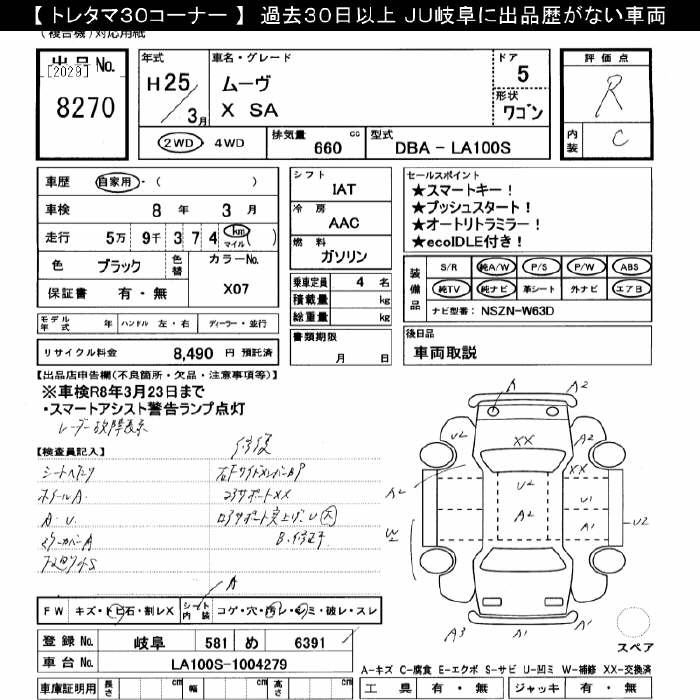 【トレタマ30コーナー】 過去30日以上 JU岐阜に出品歴がない車両
(複合機)対応用紙
出品No. [2029]
8270
年式 H25 / 3月
車名・グレード
ムーヴ
X SA
ドア 5
形状 ワゴン
評価点 R
内装 C
2WD・4WD
排気量 660 cc
型式 DBA-LA100S
車歴 自家用・( )
車検 8年 3月
走行 5万 9千 3 7 4 km マイル ( )
色 ブラック 色替 カラーNo. X07
保証書 有・無
モデル年式 年 ハンドル 左・右 ディーラー・並行
リサイクル料金 8,490 円 預託済
シフト IAT
冷房 AAC
燃料 ガソリン
乗車定員 4 名
積載量 kg
総重量 kg
書類期限
月 日
セールスポイント
★スマートキー!
★プッシュスタート!
★オートリトラミラー!
★ecoIDLE付き!
装備品 S/R 純A/W P/S P/W ABS
純TV 純ナビ 革シート 外ナビ エアB
ナビ型番: NSZN-W63D
後日品
車両取説
【出品店申告欄(不良箇所・欠品・注意事項等)】
※車検R8年3月23日まで
・スマートアシスト警告ランプ点灯
レーダー故障表示
【検査員記入】
修復
シートヘタリ
ホイールA.
A.U.
コアサポートXX
B.修正キ
A
FW キズ・トビ石・割レX シート内装 コゲ・穴・汚レ・シミ・破レ・スレ
登録No. 岐阜 581 め 6391
車台No. LA100S-1004279
車庫証明用 長さ cm 幅 cm 高さ cm
A
A2
U2
XX
A2
A2
XX
U2
A2
U1
U2
W
A1
A1
A3
A1
スペア
A-キズ C-腐食 E-エクボ S-サビ U-凹ミ W-補修 XX-交換済
工具 有・無 ジャッキ 有・無